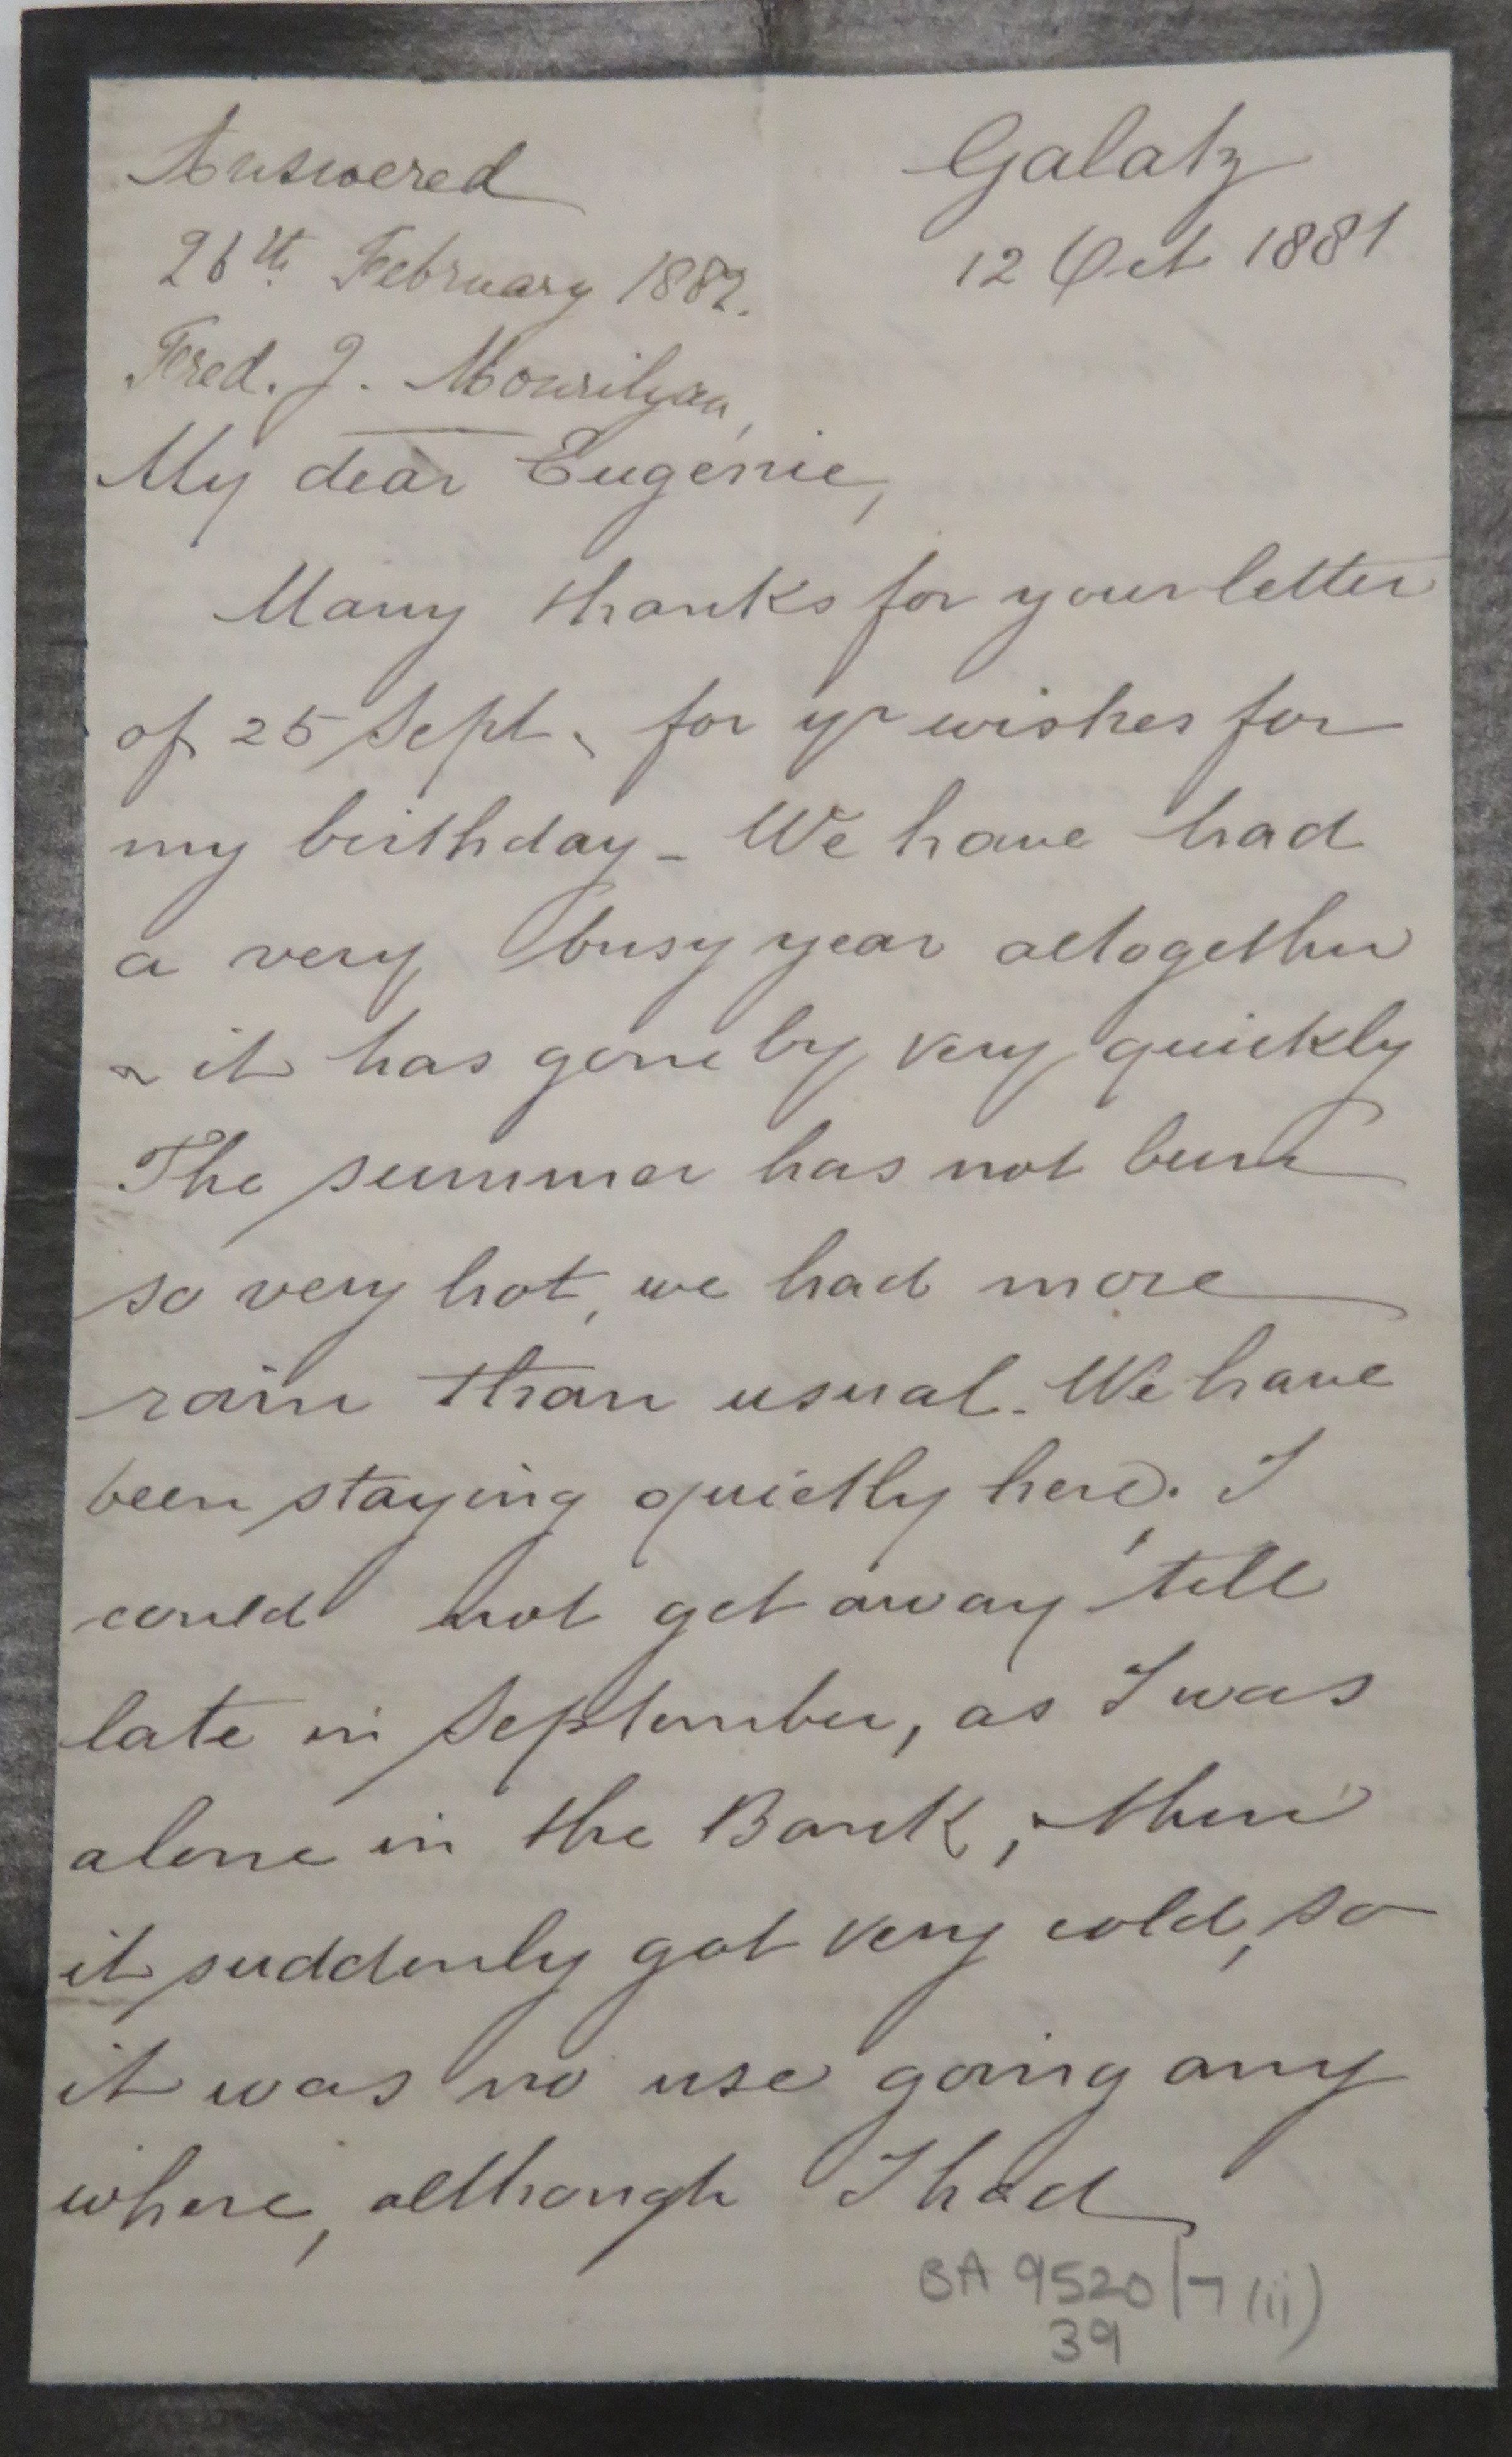 Answered
Galatz
26th February 1882.
12 Oct 1881
Fred. J. Mourilyan
My dear Eugénie,
Many thanks for your letter
of 25 Sept. for yr wishes for
my birthday - We have had
a very busy year altogether
& it has gone by very quickly
The summer has not been
so very hot, we had more
rain than usual. We have
been staying quietly here. I
could not get away till
late in September, as I was
alone in the Bank, & then
it suddenly got very cold, so
it was no use going any
where, although I had
BA 9520/7 (ii)
39